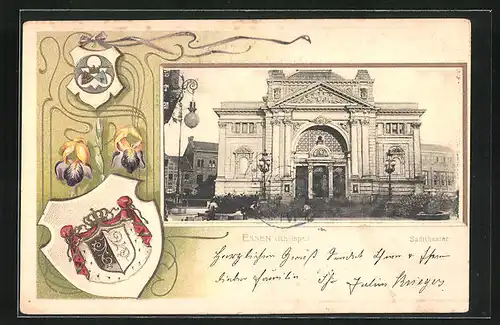 ESSEN (Ruhr).
Stadttheater
Herzlichen Gruß Sendet Ihnen & Ihrer
lieben Familie Ihr Julius Krieger